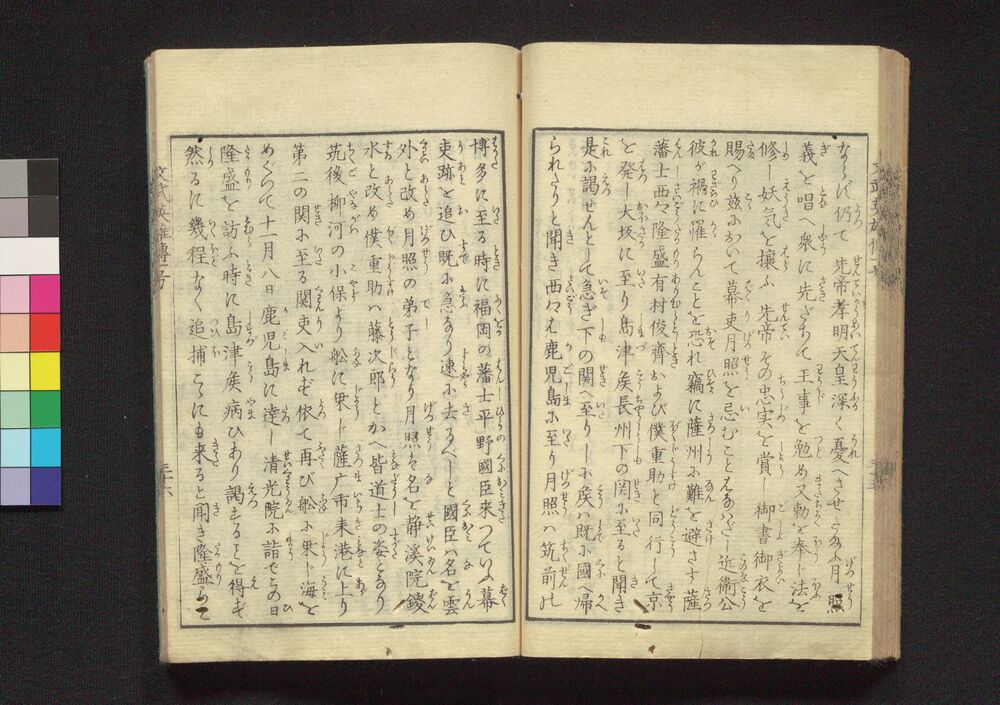 ならず仍て先帝孝明天皇深く憂へさせたまふ月照
義を唱へ衆に先だちて王事を勉め又勅を奉じ法を
修し妖気を攘ふ先帝その忠実を賞し御書御衣を
賜へり茲において幕吏月照を忌むことはなはだし近衛公
彼が禍に罹らんことを恐れ竊に薩州に難を避さす薩
藩士西郷隆盛有村俊齋および僕重助と同行して京
を発し大坂に至り島津侯長州下の関に至ると聞き
是に謁せんとして急ぎ下の関へ至りしに侯ハ既に國に帰
られたりと聞き西郷ハ鹿児島に至り月照ハ筑前の
博多に至る時に福岡の藩士平野國臣来つていふ幕
吏跡を追ひ既に急なり速に去るべしと國臣ハ名を雲
外と改め月照の弟子となり月照ハ名を静溪院鑁
水と改め僕重助ハ藤次郎とかへ皆道士の姿となり
筑後柳河の小保より舩に乗じ薩广市来港に上り
第二の関に至る関吏入れず依て再び舩に乗じ海を
めぐつて十一月八日鹿児島に達し清光院に詣でその日
隆盛を訪ふ時に島津侯病ひあり謁することを得ず
然るに幾程なく追捕こゝにも来ると聞き隆盛らて
文武英雄傳一号